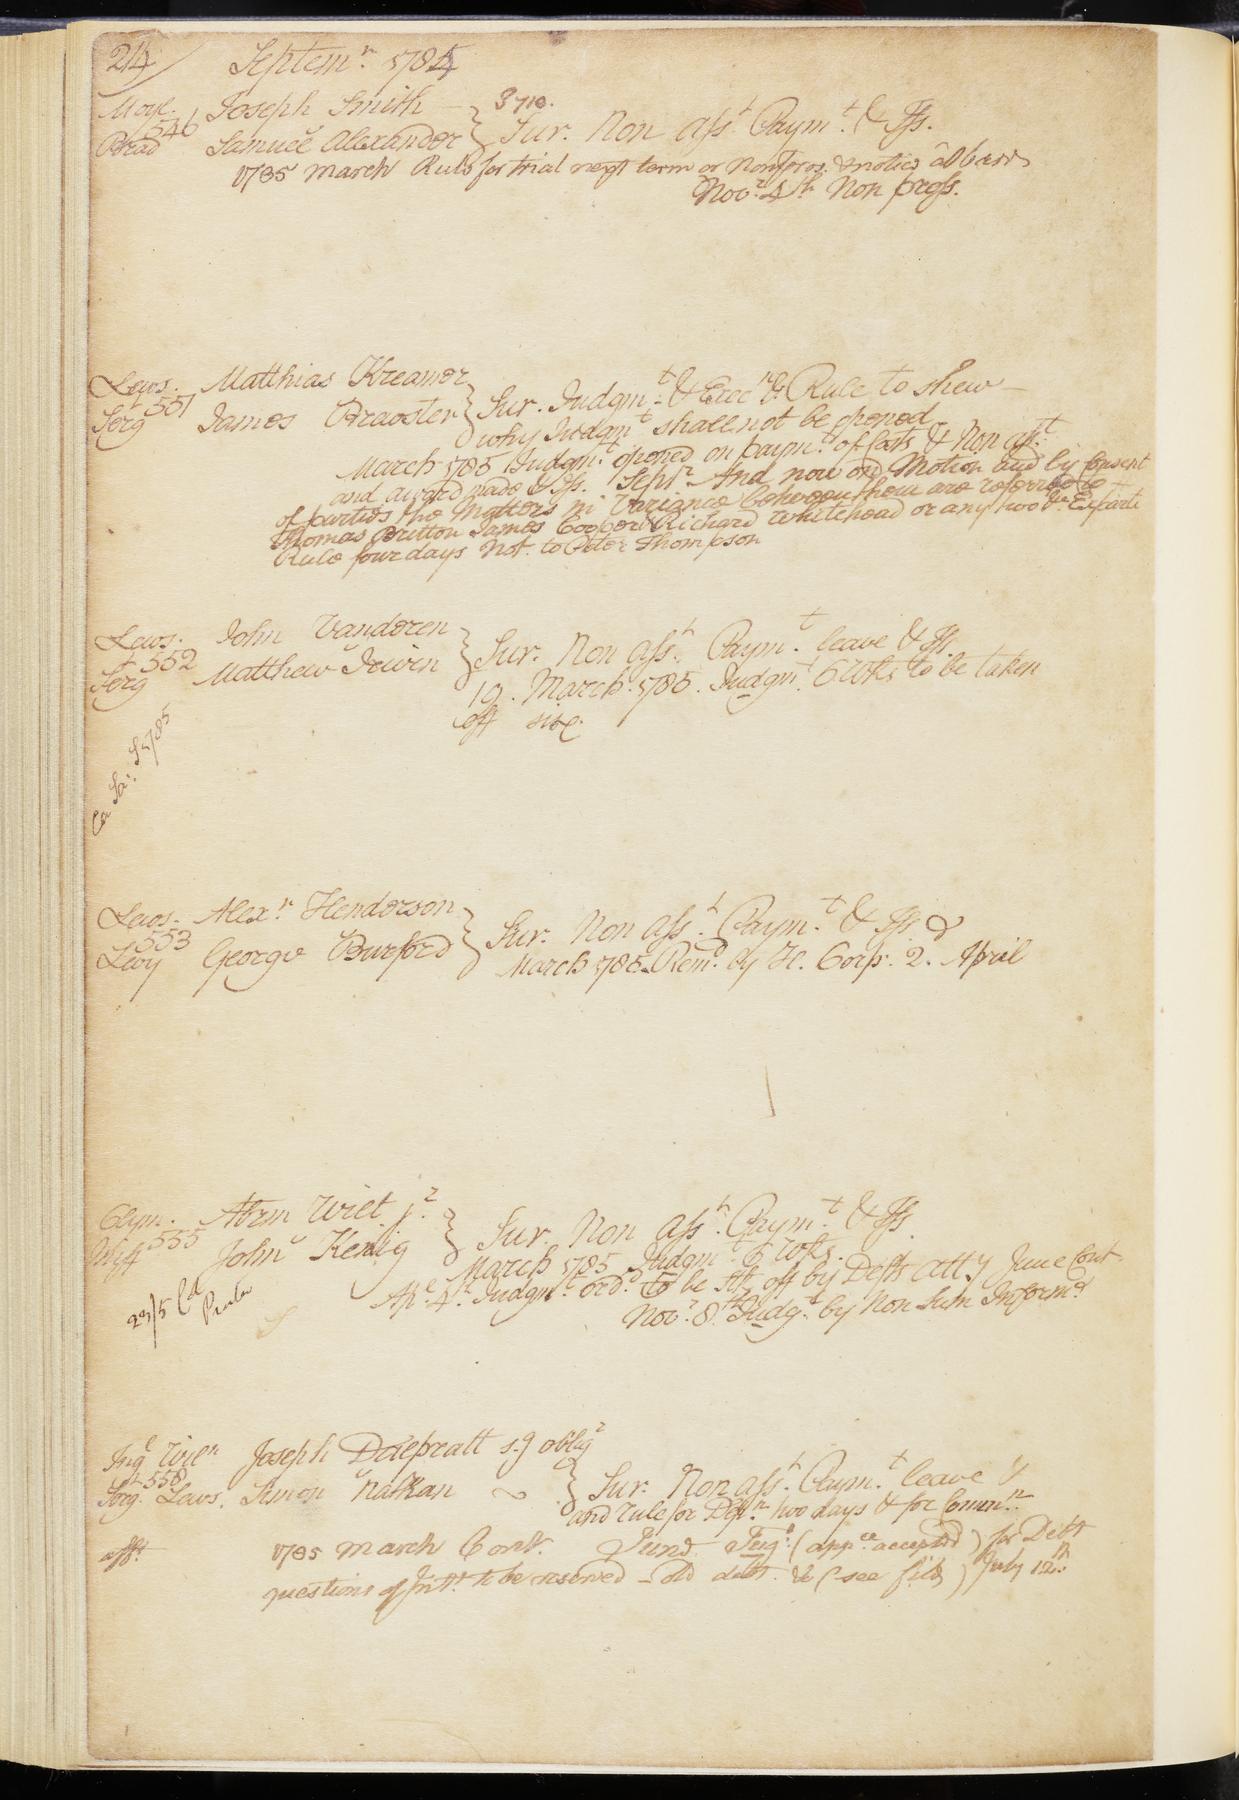 214 Septemr. 1784
Moyl. Joseph Smith 3 710.
546
Brad Samuel Alexander } Sur. Non Asst. Paymt. & Iss.
1785 March Rule for trial next term or Non pros. & notice at bar
Novr. 4th. Non pross.
Lews. Matthias Kreamer
551
Serg James Brawster } Sur. Judgmt. & Execn. & Rule to shew
why Judgmt shall not be opened
March 1785 Judgmt. opened on paymt. of Costs & Non asst.
and award made & Iss. Septr. And now on Motion and by Consent
of parties the Matters in Variance between them are referred to
Thomas Britton James Cooper & Richard Whitehead or any two &c Exparte
Rule four days Not. to Peter Thompson
Lews. John Vandoren
552
Serg Matthew Irwin } Sur. Non Asst. Paymt. leave & Iss.
19. March. 1785. Judgmt. 6 Wks to be taken
off &c.
Ca Sa: S 1785
Lews. Alexr. Henderson
553
Levy George Burford } Sur. Non Asst. Paymt. & Iss
March 1785. Remd. by H. Corps. 2. April
Clym. Abrm Wilt jr.
555
John Kenig } Sur. Non Asst. Paymt. & Iss.
March 1785 Judgmt. 6 Wks.
Apl. 4th. Judgmt. ordd. to be off by Defts Atty June Cont
Novr. 8th. Judgt. by Non Sum Informs
23/5 Pd
Ingl Wiln Joseph Delepratt s.g obligr
558
Serg. Lews. Simon Nathan } Sur. Non asst. Paymt. leave &
and rule for Depns. two days & for Commn.
1785 March Cont. June Judgt. (appce accepted) for Debt
questions of Intt. to be reserved - old debt. &c (see file) July 12th.